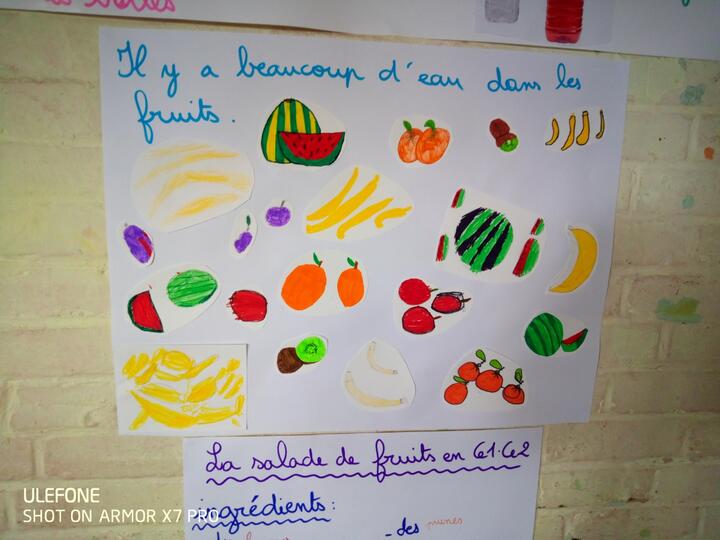 Il y a beaucoup d'eau dans les
fruits.
La salade de fruits en Ce1-Ce2
ingrédients :
- des prunes
ULEFONE
SHOT ON ARMOR X7 PRO